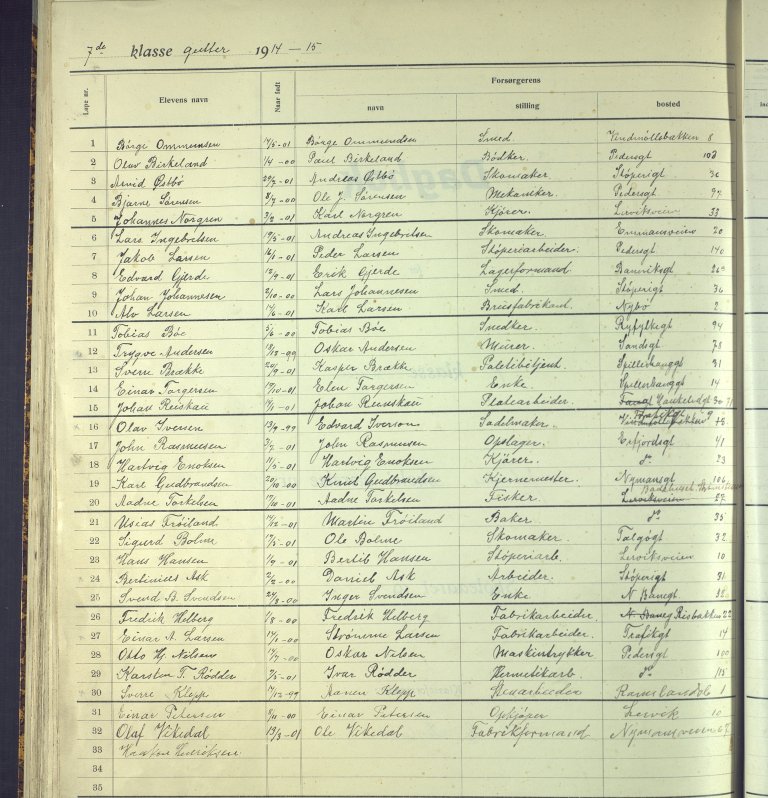 7de klasse gutter 1914 – 15
Løpe nr. Elevens navn Naar født Forsørgerens
navn stilling bosted
1 Børge Ommundsen 14/5-01 Børge Ommundsen Smed Vindmöllebakken 8
2 Olav Birkeland 1/4-00 Paul Birkeland Bödker. Pedersgt 103
3 Arvid Østbö 29/7-01 Andreas Østbö Skomaker Stöperigt 36
4 Bjarne Sörensen 8/7-00 Ole J. Sörensen Mekaniker. Pedersgt
5 Johannes Norgren 2/2-01 Karl Norgren Kjörer. Lerviksveien 33
6 Lars Ingebretsen 19/5-01 Andreas Ingebretsen Skomaker Emmausveien 20
7 Jakob Larsen 16/1-01 Peder Larsen Stöperiarbeider. Pedersgt 140
8 Edvard Gjerde 12/9-01 Erik Gjerde Lagerformand Banviksgt
9 Johan Johannesen 2/10-00 Lars Johannesen Smed Stöperigt 36
10 Alv Larsen 14/6-01 Karl Larsen Brusfabrikant Nybö 2
11 Tobias Böe 5/6-00 Tobias Böe Snedker. Ryfylkegt 94
12 Trygve Andersen 19/12-99 Oskar Andersen Murer. Sandsgt 78
13 Sverre Brække 20/9-01 Kasper Brække Politibetjent. 31
14 Einar Torgersen 17/10-01 Elen Torgersen Enke. 14
15 Johan Reinskau 17/1-01 Johan Reinskau Platearbeider. Haukelidgt
16 Olav Iversen 13/9-99 Edvard Iverson Sadelmaker. Trafikgt 9
17 John Rasmussen 2/7-01 John Rasmussen Opslager. Erfjordsgt 41
18 Hartvig Enoksen 11/5-01 Hartvig Enoksen Kjörer. do 23
19 Karl Gudbrandsen 20/10-00 Knud Gudbrandsen Kjernemester. Nymansgt 106
20 Aadne Torkelsen 17/10-01 Aadne Torkelsen Fisker. Lerviksveien 27
21 Usias Fröiland 14/12-01 Marten Fröiland Baker. do 35
22 Sigurd Bolme 17/5-01 Ole Bolme Skomaker. Talgøgt 32
23 Hans Hansen 1/9-01 Bertil Hansen Stöperiarb. Lerviksveien 10
24 Bertinius Ask 2/2-00 Daniel Ask Arbeider. Stöperigt 31
25 Svend B. Svendsen 24/8-00 Inger Svendsen Enke N Banegt 32
26 Fredrik Helberg 1/8-00 Fredrik Helberg Fabrikarbeider. N. Baneg Risbakken 22
27 Einar A. Larsen 14/1-00 Larsen Fabrikarbeider. Trafikgt 14
28 Otto Hj. Nilsen 14/7-00 Oskar Nilsen Maskintrykker Pedersgt 100
29 Karsten T. Rödder 7/5-01 Ivar Rödder Hermetikarb. do 115
30 Sverre Klepp 17/12-99 Klepp Stenarbeider 1
31 Einar Petersen 8/11-00 Einar Petersen Opkjöper Lervik 10
32 Olaf Vikedal 13/3-01 Ole Vikedal Fabrikformand Nymansveien
33
34
35